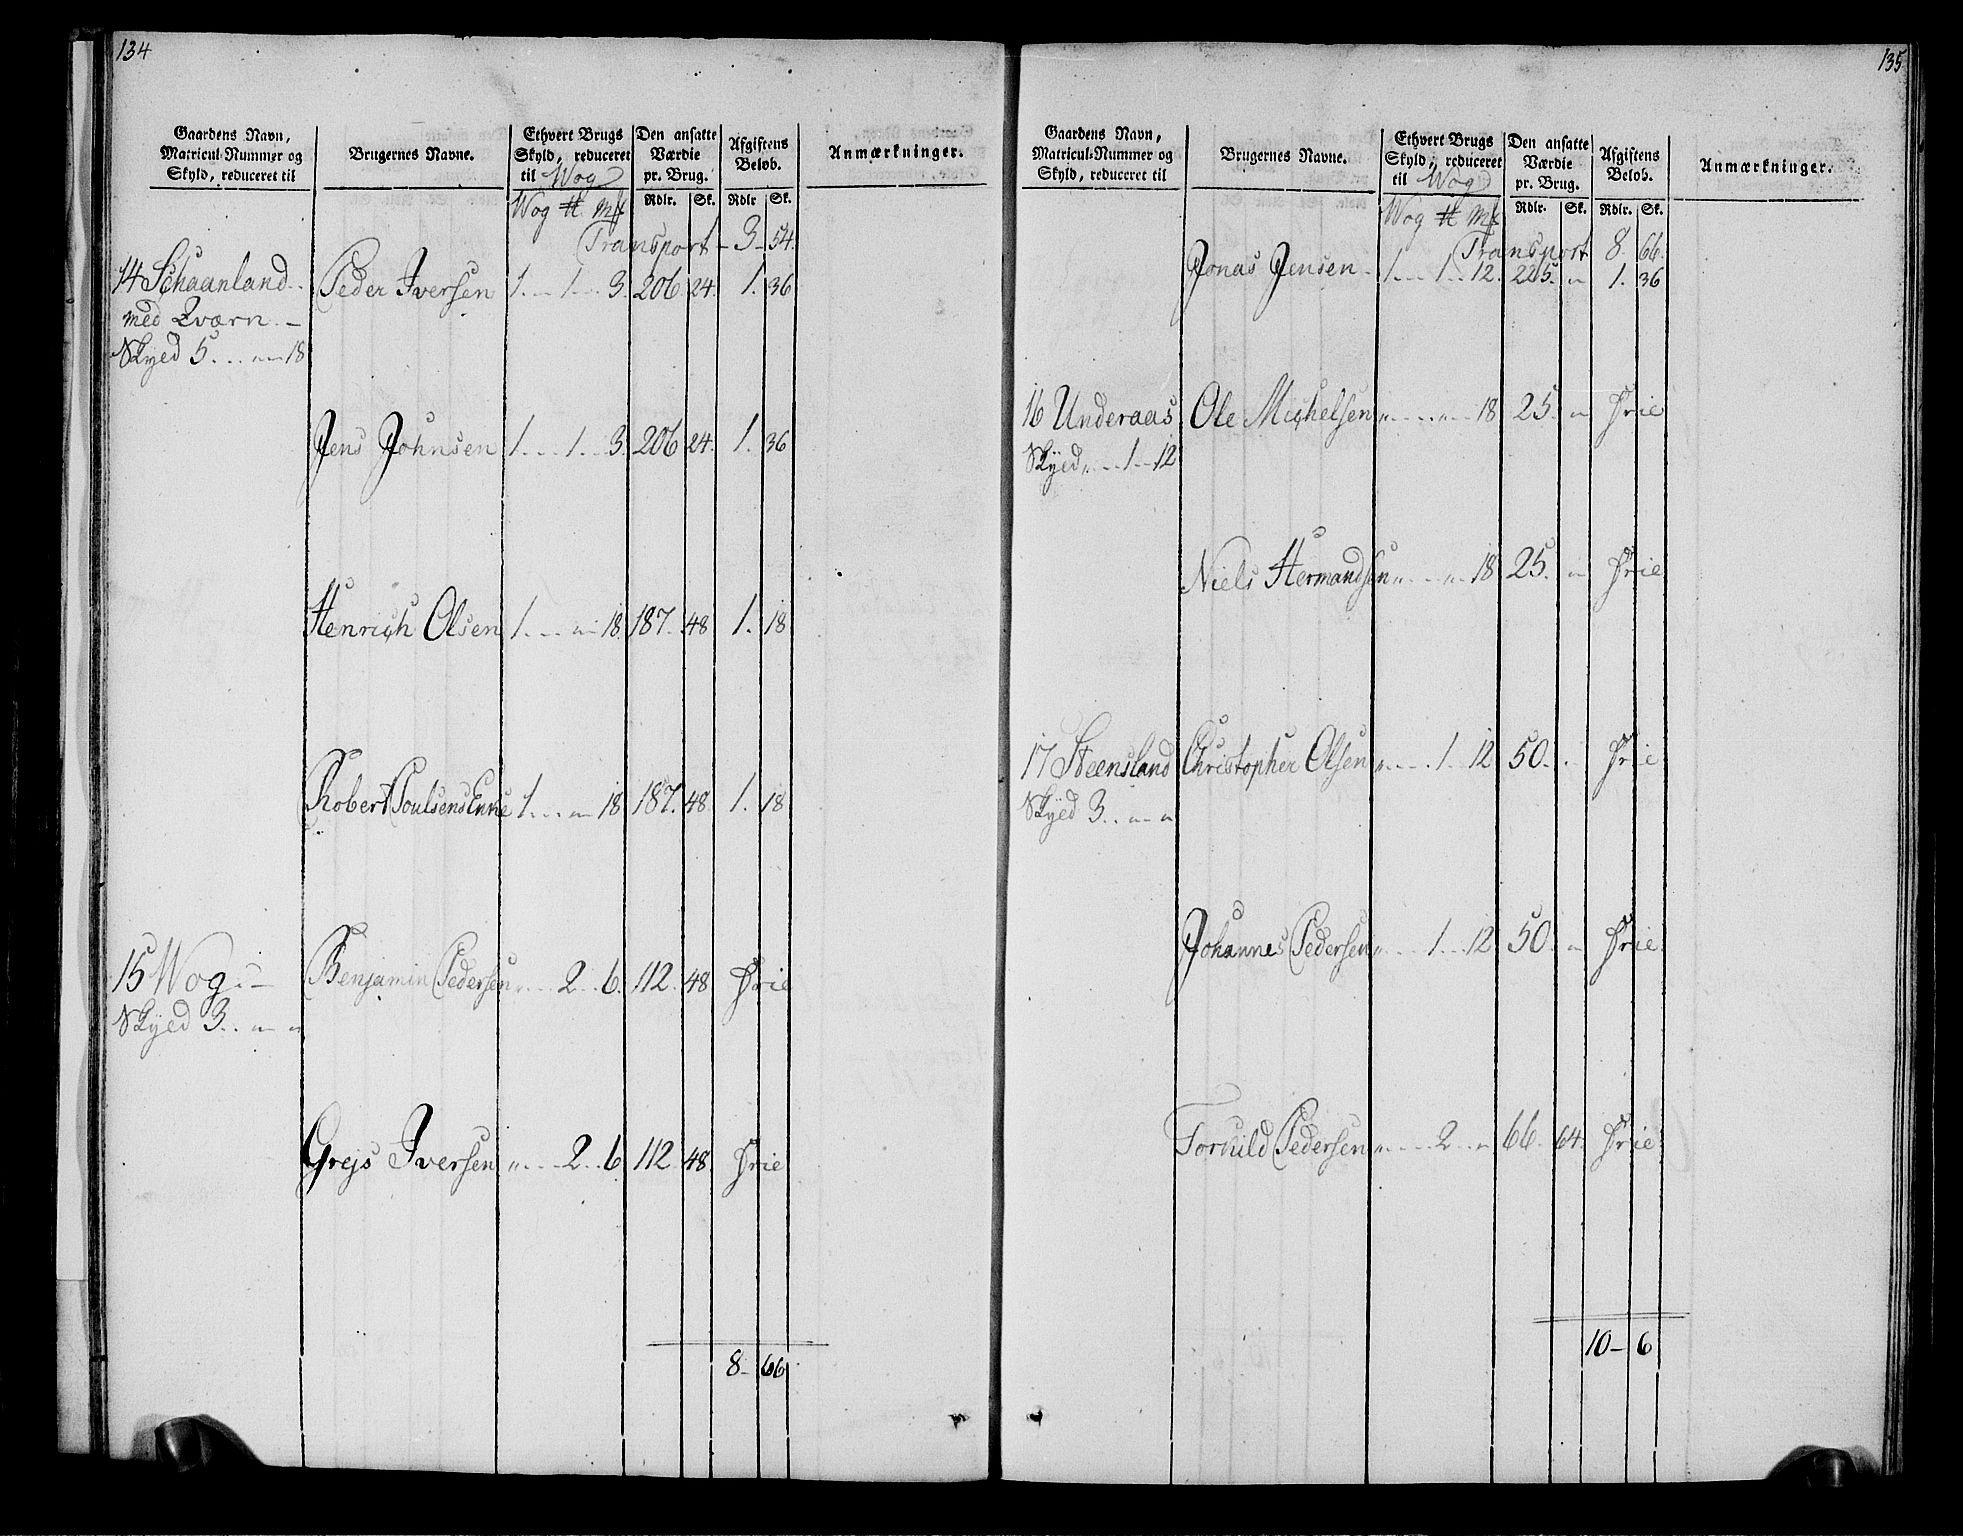 134
Gaardens Navn, Matricul-Nummer og Skyld, reduceret til
Brugernes Navne.
Ethvert Brugs Skyld, reduceret til Wog
Den ansatte Værdie pr. Brug.
Afgiftens Beløb.
Anmærkninger.
Wog ℔ Mk Rdlr. Sk. Rdlr Sk.
Transport - 3 - 54.
14 Schaanland Peder Iversen 1 1 3. 206 24. 1. 36
med Qværn
Skyed 5 " 18
Jens Johnsen 1 1 3. 206 24. 1. 36
Henrich Olsen 1 " 18. 187. 48 1. 18
Robert Poulsens Enke 1 " 18 187. 48 1. 18
15 Wog Benjamin Pedersen " 2 6. 112. 48 Frie
Skyed 3 " "
Grejs Iversen " 2 6 112. 48 Frie
8 - 66
135
Gaardens Navn, Matricul-Nummer og Skyld, reduceret til
Brugernes Navne.
Ethvert Brugs Skyld, reduceret til Wog
Den ansatte Værdie pr. Brug.
Afgiftens Beløb.
Anmærkninger.
Wog ℔ Mk Rdlr. Sk. Rdlr. Sk.
Transport 8. 66.
Jonas Jensen 1 1 12. 225. " 1. 36
16 Underaas Ole Michelsen " " 18 25. " Frie
Skyed " 1 12
Niels Hermandsen " " 18 25. " Frie
17 Steensland Christopher Olsen " 1 12 50. Frie
Skyed 3 " "
Johannes Pedersen " 1 12 50. " Frie
Torkild Pedersen " 2 " 66. 64 Frie
10 - 6